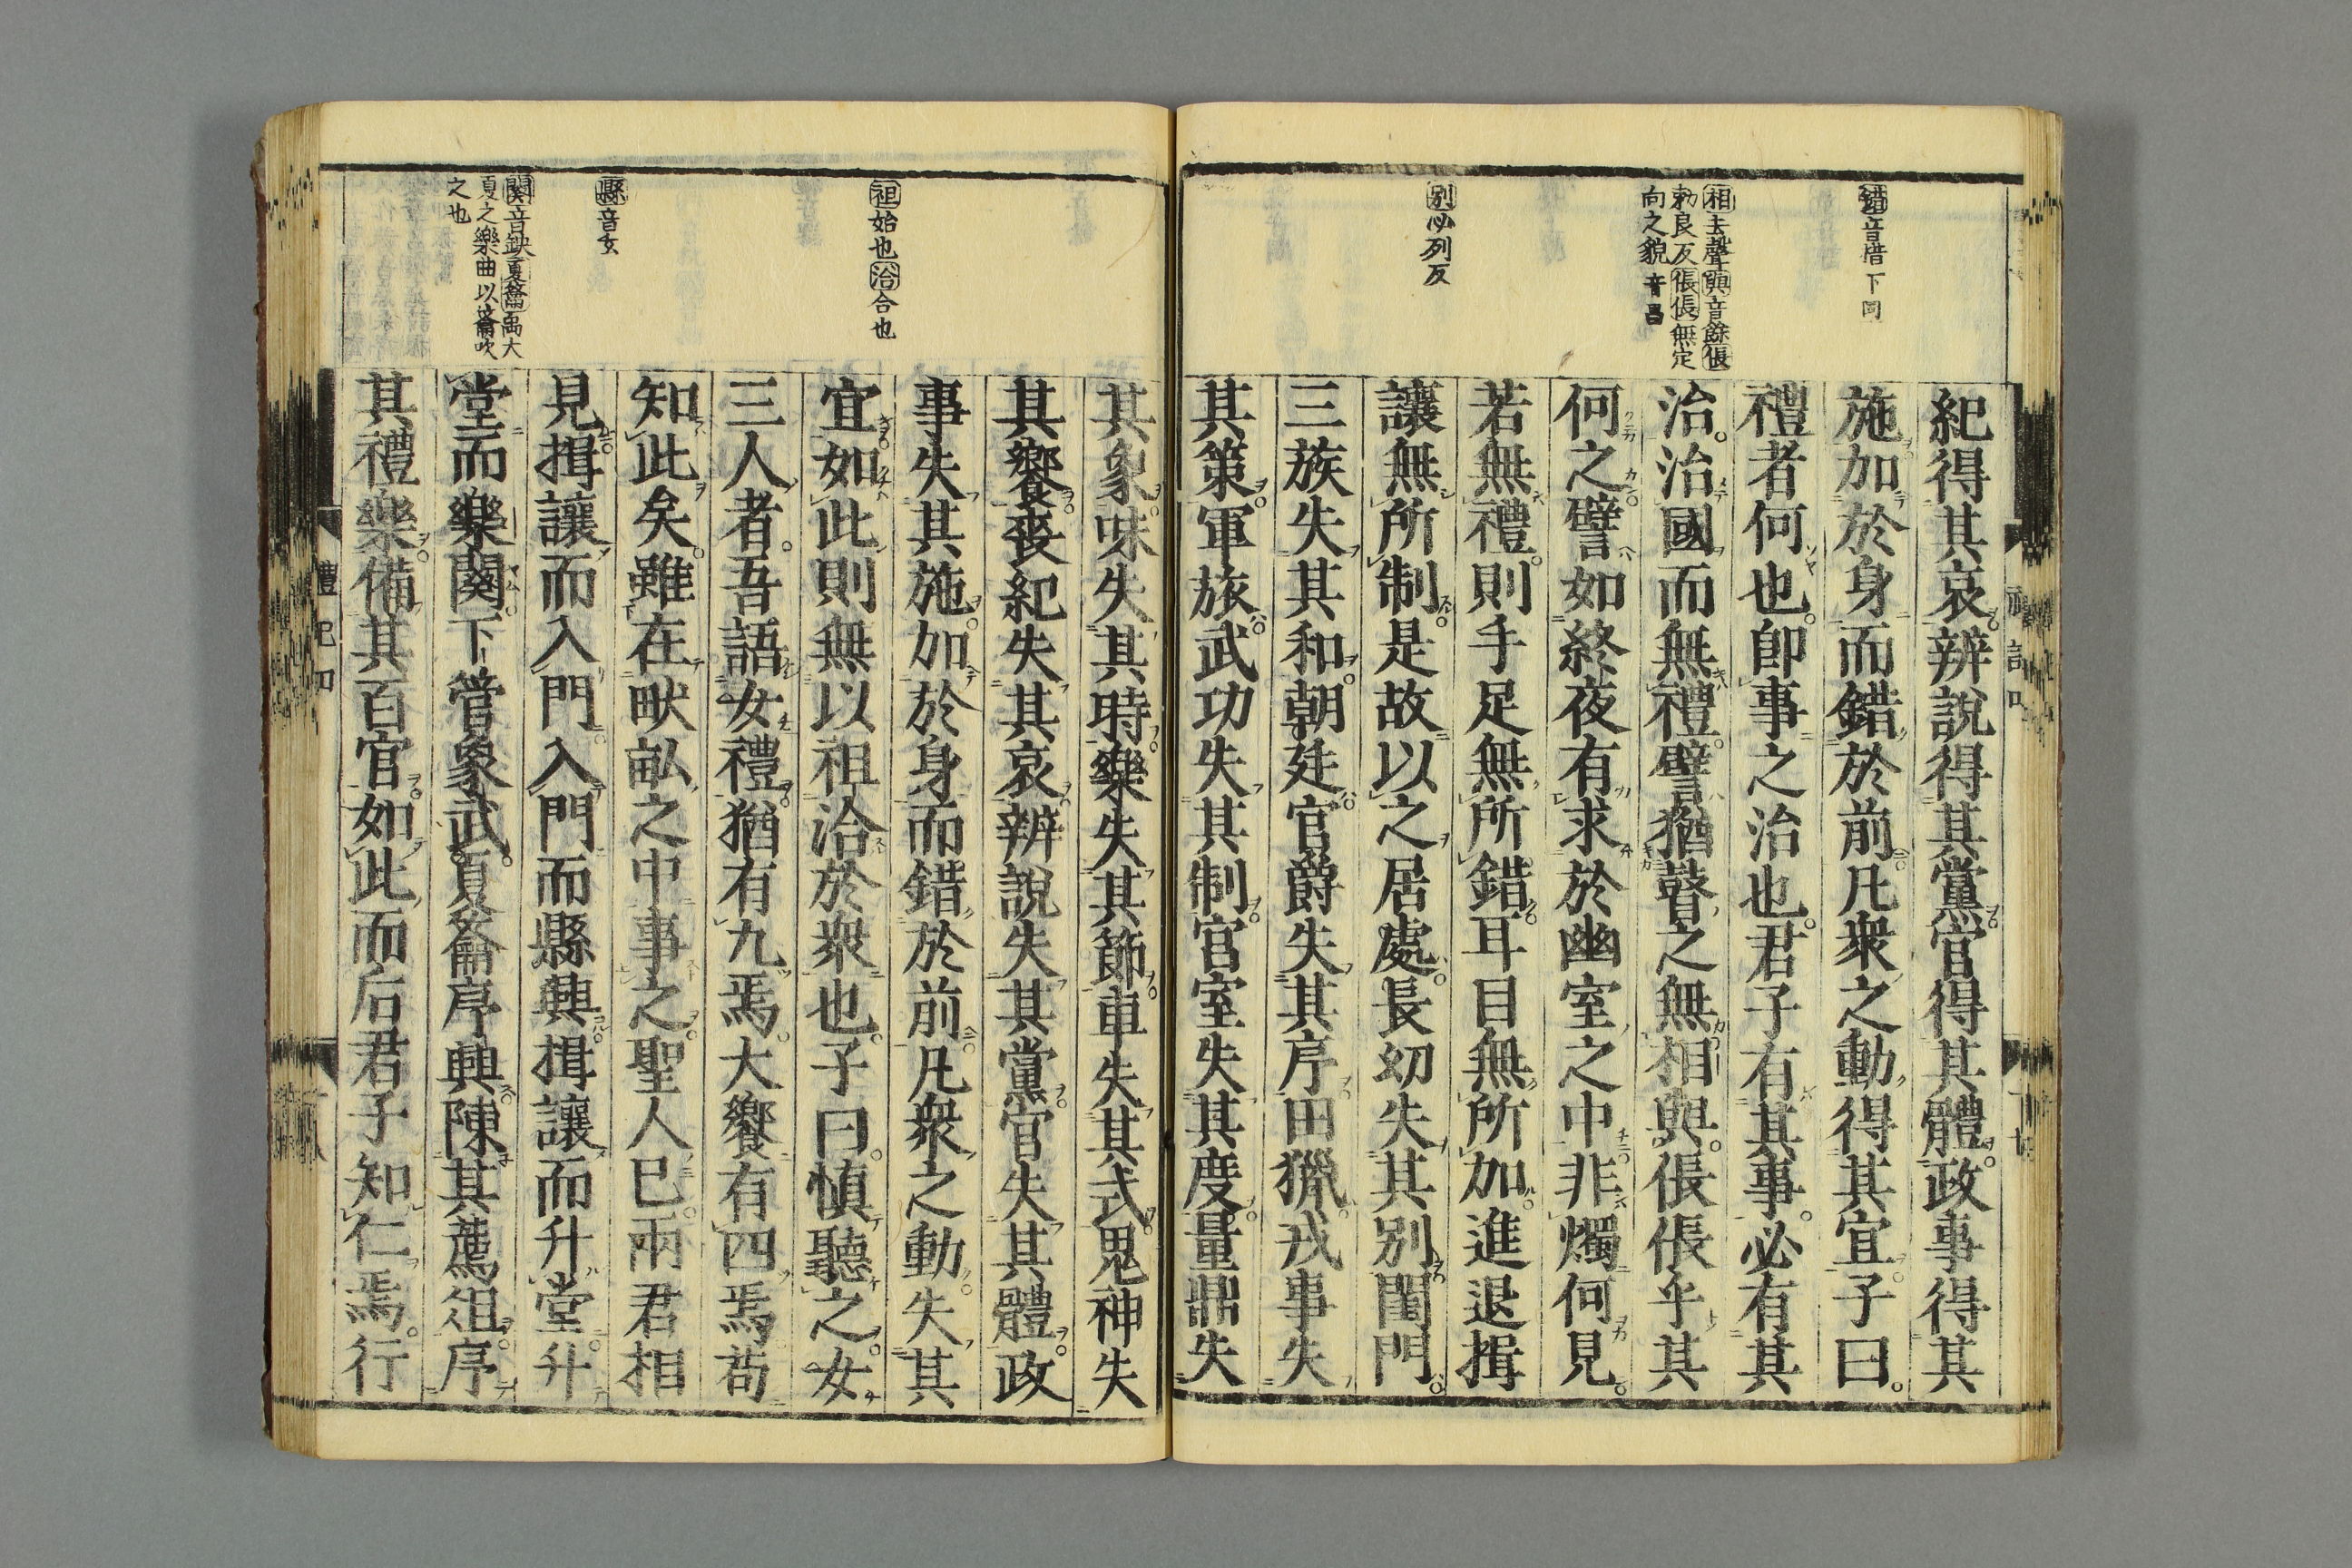 錯音惜下同
相去聲與音餘倀
勑良反倀倀無定
向之貌音昌
別必列反
紀得其哀辨說得其黨官得其體政事得其
施加於身而錯於前凡衆之動得其宜子曰
禮者何也卽事之治也君子有其事必有其
治治國而無禮譬猶瞽之無相與倀倀乎其
何之譬如終夜有求於幽室之中非燭何見
若無禮則手足無所錯耳目無所加進退揖
讓無所制是故以之居處長幼失其別閨門
三族失其和朝廷官爵失其序田獵戎事失
其策軍旅武功失其制宮室失其度量鼎失
祖始也洽合也
縣音玄
闋音缺夏籥禹大
夏之樂曲以籥吹
之也
其象味失其時樂失其節車失其式鬼神失
其饗喪紀失其哀辨說失其黨官失其體政
事失其施加於身而錯於前凡衆之動失其
宜如此則無以祖洽於衆也子曰慎聽之女
三人者吾語女禮猶有九焉大饗有四焉苟
知此矣雖在畎畝之中事之聖人已兩君相
見揖讓而入門入門而縣興揖讓而升堂升
堂而樂闋下管象武夏籥序興陳其薦俎序
其禮樂備其百官如此而后君子知仁焉行
禮記四